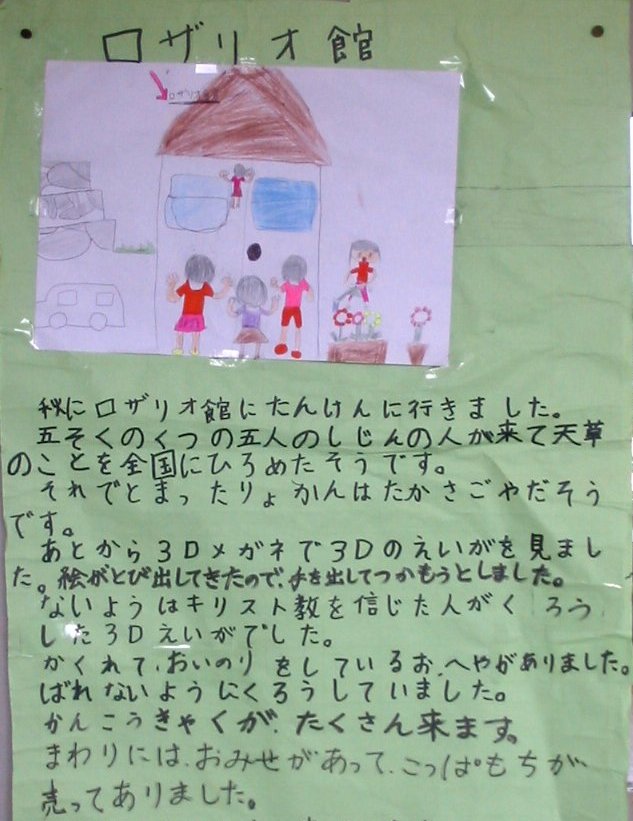 ロザリオ館
ロザリオ館
秋にロザリオ館にたんけんに行きました。
五そくのくつの五人のしじんの人が来て天草
のことを全国にひろめたそうです。
それでとまったりょかんはたかさごやだそう
です。
あとから3Dメガネで3Dのえいがを見まし
た。絵がとび出してきたので、手を出してつかもうとしました。
ないようはキリスト教を信じた人がくろう
した3Dえいがでした。
かくれて、おいのりをしているお、へやがありました。
ばれないようにくろうしていました。
かんこうきゃくが、たくさん来ます。
まわりには、おみせがあって、こっぱもちが
売ってありました。